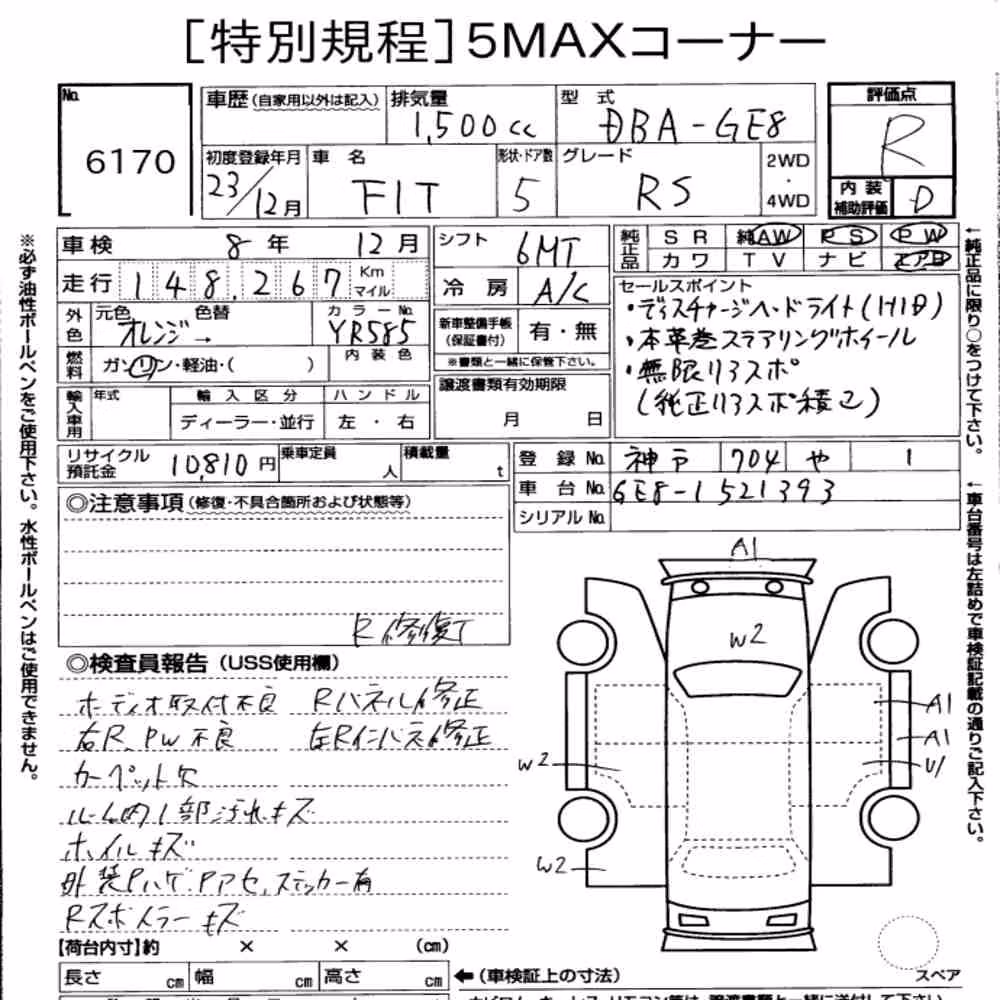 [特別規程]5MAXコーナー
No. 6170
車歴(自家用以外は記入) 排気量 1,500cc 型式 DBA-GE8 評価点 R
初度登録年月 23/12月 車名 FIT 形状・ドア数 5 グレード RS 2WD・4WD 内装補助評価 D
※必ず油性ボールペンをご使用下さい。水性ボールペンはご使用できません。
車検 8年 12月 シフト 6MT 純正品 SR 純AW PS PW
走行 148,267 Km マイル 冷房 A/C カワ TV ナビ エアB
外色 元色 オレンジ→ 色替 カラーNo. YR585 新車整備手帳(保証書付) 有・無 セールスポイント
・ディスチャージヘッドライト(HID)
・本革巻ステアリングホイール
・無限リアスポ
(純正リアスポ積込)
燃料 ガソリン・軽油・( ) 内装色 ※書類と一緒に保管下さい。
輸入車用 年式 輸入区分 ハンドル 譲渡書類有効期限
ディーラー・並行 左・右 月 日
リサイクル預託金 10,810円 乗車定員 人 積載量 t 登録No. 神戸 704 や 1
車台No. GE8-1521393
シリアルNo.
←純正品に限り○をつけて下さい。
←車台番号は左詰めで車検証記載の通りご記入下さい。
◎注意事項(修復・不具合箇所および状態等)
R修復了
◎検査員報告(USS使用欄)
オーディオ取付不良 Rパネル修正
右R、PW不良 左Rインパネ修正
カーペット欠
ルーム内1部汚れキズ
ホイルキズ
外装Pハゲ、Pアセ、ステッカー有
Rスポイラーキズ
A1
W2
A1
A1
U1
W2
W2
スペア
【荷台内寸】約 × × (cm)
長さ cm 幅 cm 高さ cm ←(車検証上の寸法)